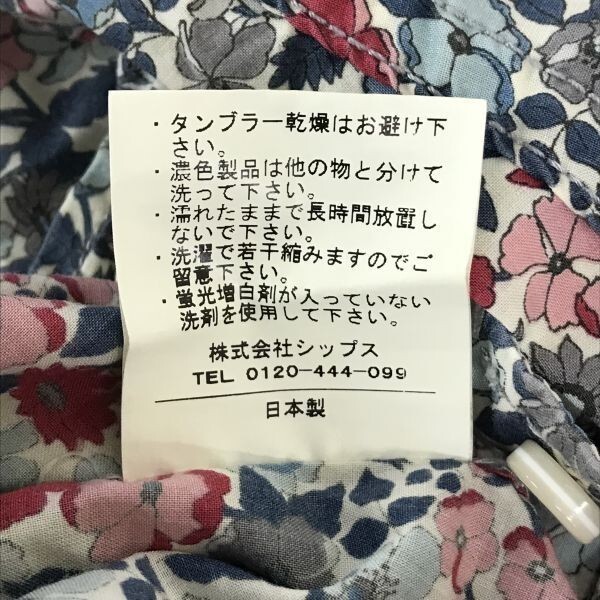 ・タンブラー乾燥はお避け下
さい。
・濃色製品は他の物と分けて
洗って下さい。
・濡れたままで長時間放置し
ないで下さい。
・洗濯で若干縮みますのでご
留意下さい。
・蛍光増白剤が入っていない
洗剤を使用して下さい。
株式会社シップス
TEL 0120-444-099
日本製